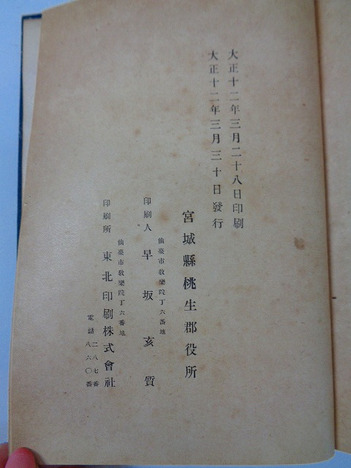 大正十二年三月二十八日印刷
大正十二年三月三十日發行
宮城縣桃生郡役所
仙臺市教樂院丁六番地
印刷人 早坂亥質
仙臺市教樂院丁六番地
印刷所 東北印刷株式會社
電話 二八七番
八六〇番